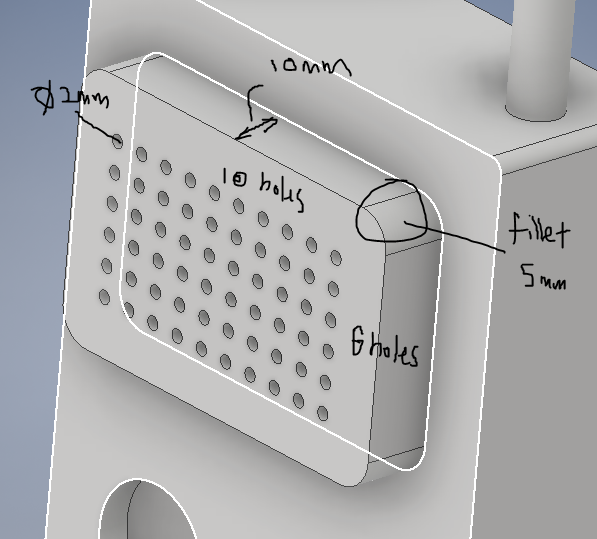 10mm
Ø2mm
10 holes
fillet
5mm
6 holes